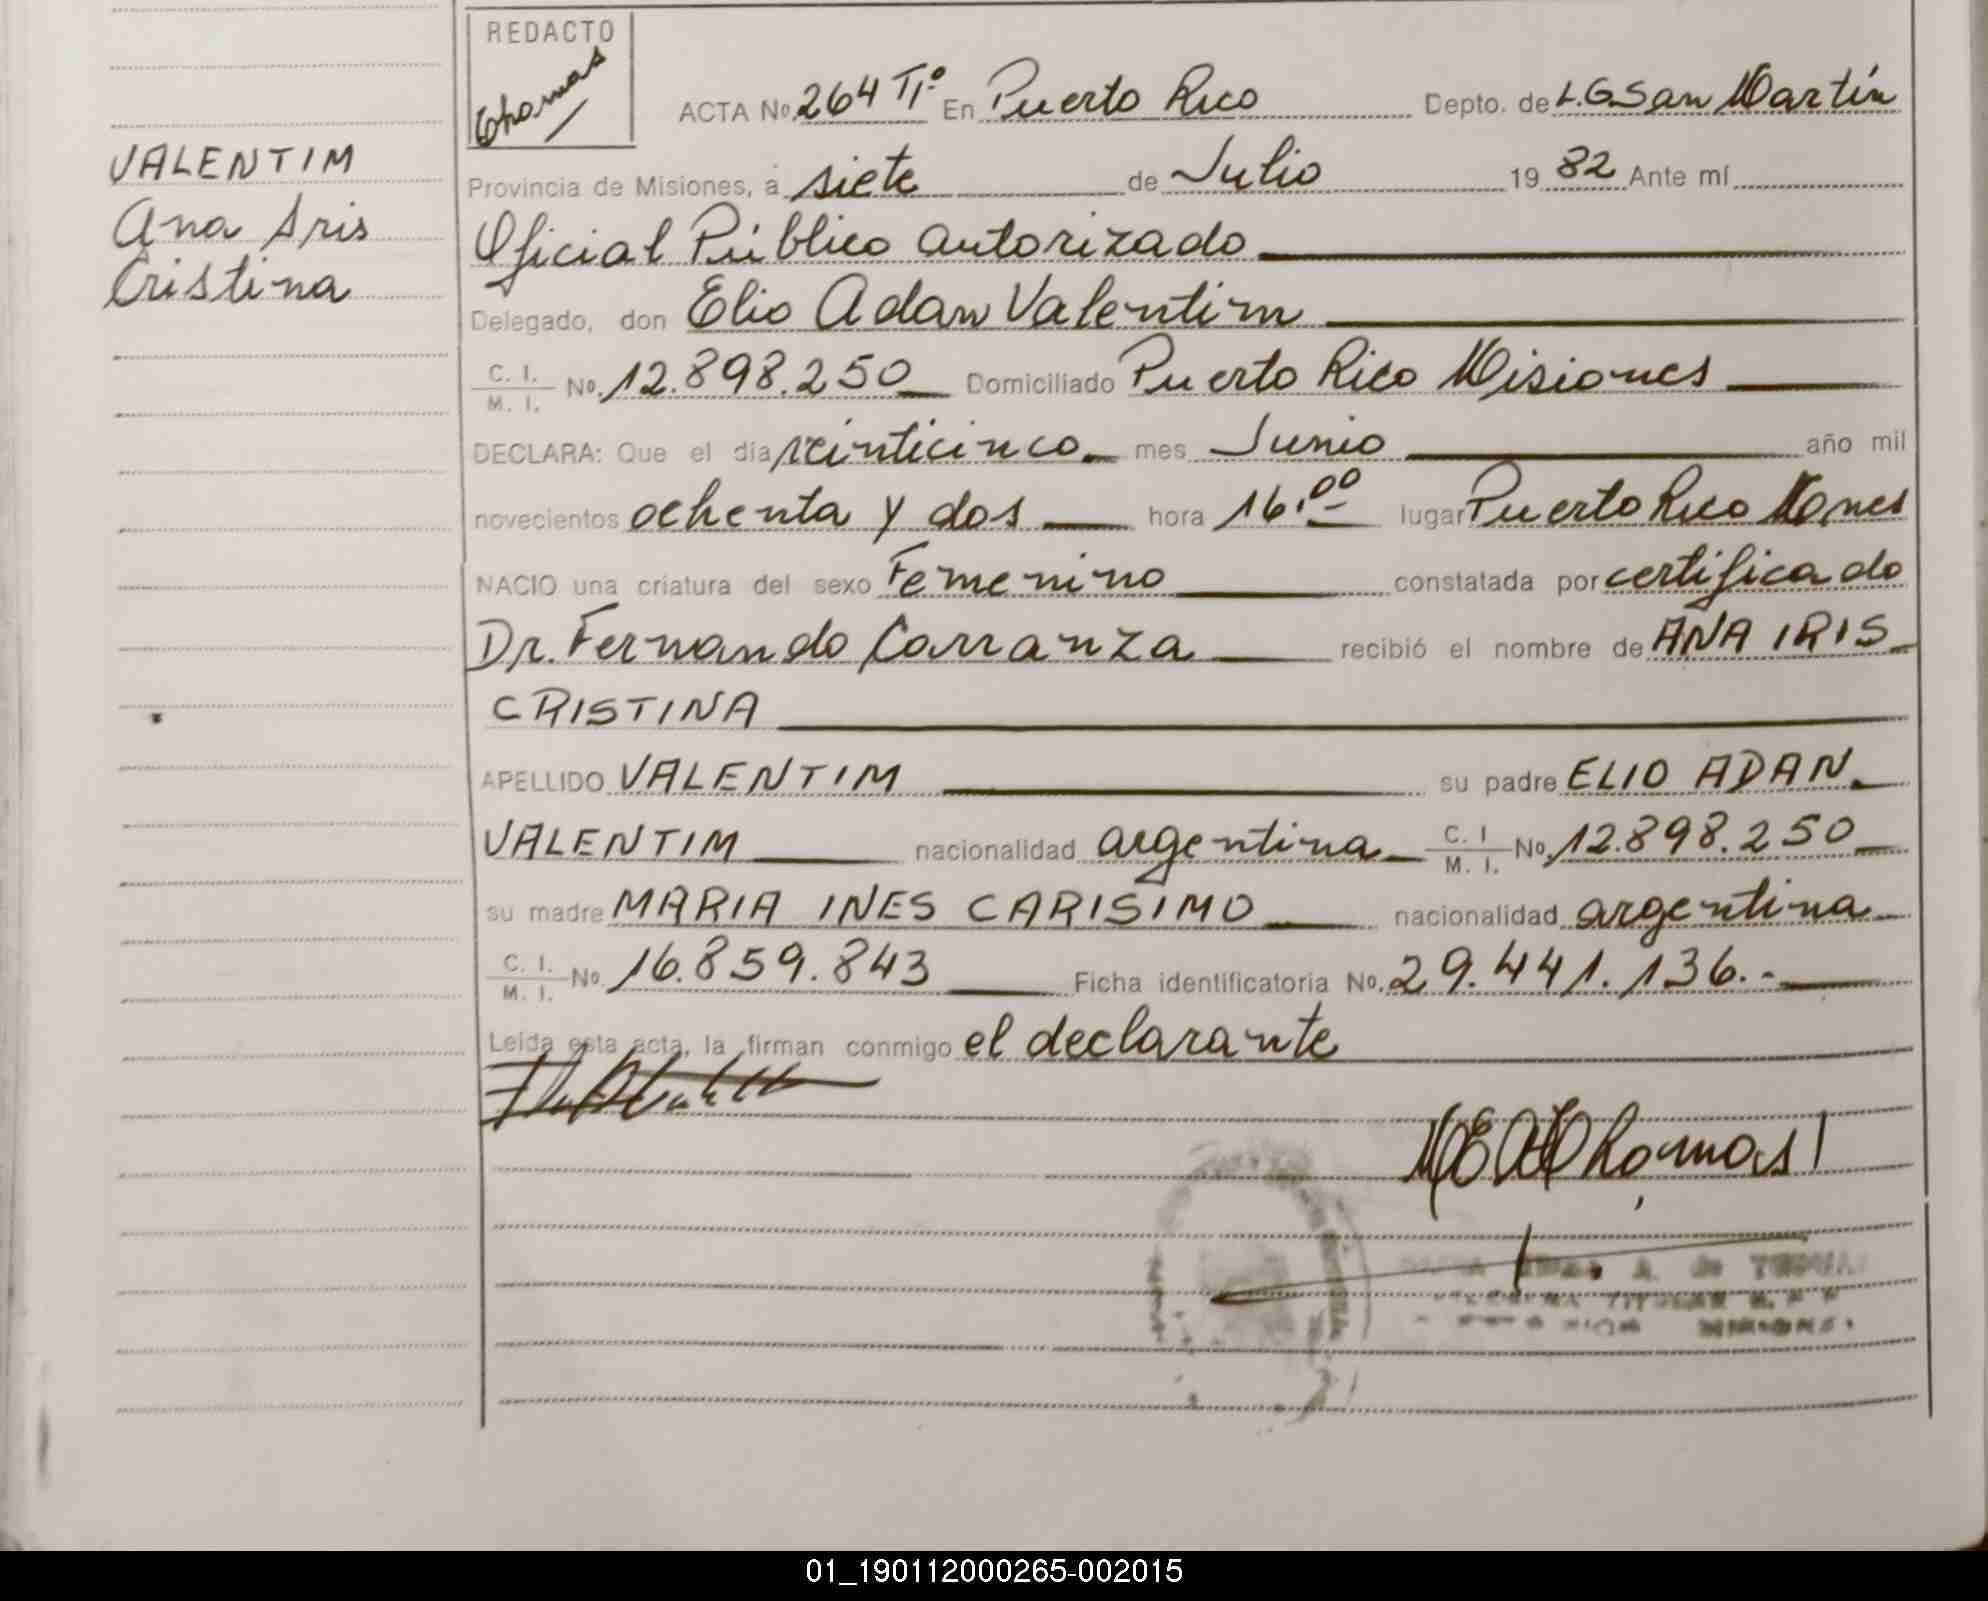 REDACTO
Thomas
ACTA No. 264 Tº1º En Puerto Rico Depto. de L.G.San Martín
VALENTIM
Ana Iris
Cristina
Provincia de Misiones, a siete de Julio 19 82 Ante mí
Oficial Público autorizado
Delegado, don Elio Adan Valentim
C. I. M. I. No. 12.898.250 Domiciliado Puerto Rico Misiones
DECLARA: Que el día veinticinco mes Junio año mil
novecientos ochenta y dos hora 16.00 lugar Puerto Rico Mnes
NACIO una criatura del sexo Femenino constatada por certificado
Dr. Fernando Carranza recibió el nombre de ANA IRIS
CRISTINA
APELLIDO VALENTIM su padre ELIO ADAN
VALENTIM nacionalidad argentina C. I M. I. No. 12.898.250
su madre MARIA INES CARISIMO nacionalidad argentina
C. I. M. I. No. 16.859.843 Ficha identificatoria No. 29.441.136.-
Leída esta acta, la firman conmigo el declarante
01_190112000265-002015